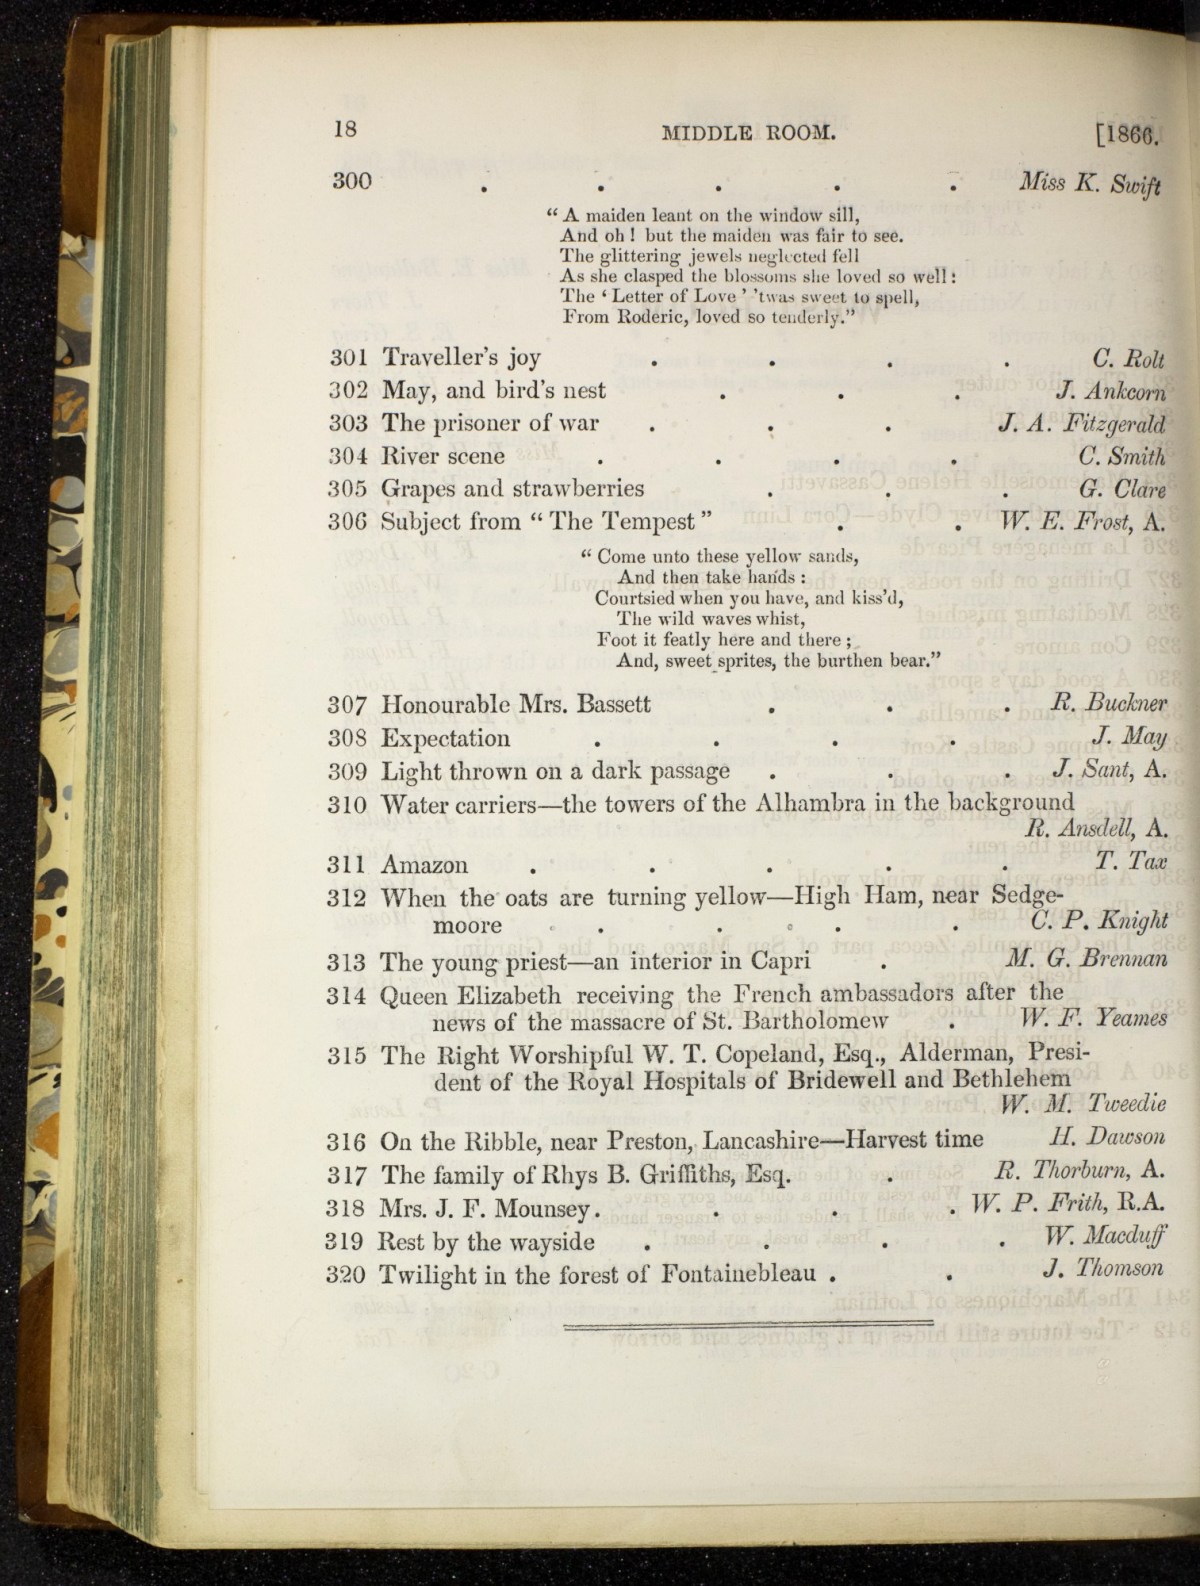 18 MIDDLE ROOM. [1866.
300 . . . . . Miss K. Swift
“ A maiden leant on the window sill,
And oh ! but the maiden was fair to see.
The glittering jewels neglected fell
As she clasped the blossoms she loved so well :
The ‘ Letter of Love ’ ’twas sweet to spell,
From Roderic, loved so tenderly.”
301 Traveller’s joy . . . . C. Rolt
302 May, and bird’s nest . . . J. Ankcorn
303 The prisoner of war . . . J. A. Fitzgerald
304 River scene . . . . C. Smith
305 Grapes and strawberries . . . G. Clare
306 Subject from “ The Tempest ” . . W. E. Frost, A.
“ Come unto these yellow sands,
And then take hands :
Courtsied when you have, and kiss’d,
The wild waves whist,
Foot it featly here and there ;
And, sweet sprites, the burthen bear.”
307 Honourable Mrs. Bassett . . . R. Buckner
308 Expectation . . . . J. May
309 Light thrown on a dark passage . . . J. Sant, A.
310 Water carriers—the towers of the Alhambra in the background
R. Ansdell, A.
311 Amazon . . . . . T. Tax
312 When the oats are turning yellow—High Ham, near Sedge-
moore . . . . C. P. Knight
313 The young priest—an interior in Capri . M. G. Brennan
314 Queen Elizabeth receiving the French ambassadors after the
news of the massacre of St. Bartholomew . W. F. Yeames
315 The Right Worshipful W. T. Copeland, Esq., Alderman, Presi-
dent of the Royal Hospitals of Bridewell and Bethlehem
W. M. Tweedie
316 On the Ribble, near Preston, Lancashire—Harvest time H. Dawson
317 The family of Rhys B. Griffiths, Esq. . R. Thorburn, A.
318 Mrs. J. F. Mounsey . . . . W. P. Frith, R.A.
319 Rest by the wayside . . . . W. Macduff
320 Twilight in the forest of Fontainebleau . . J. Thomson